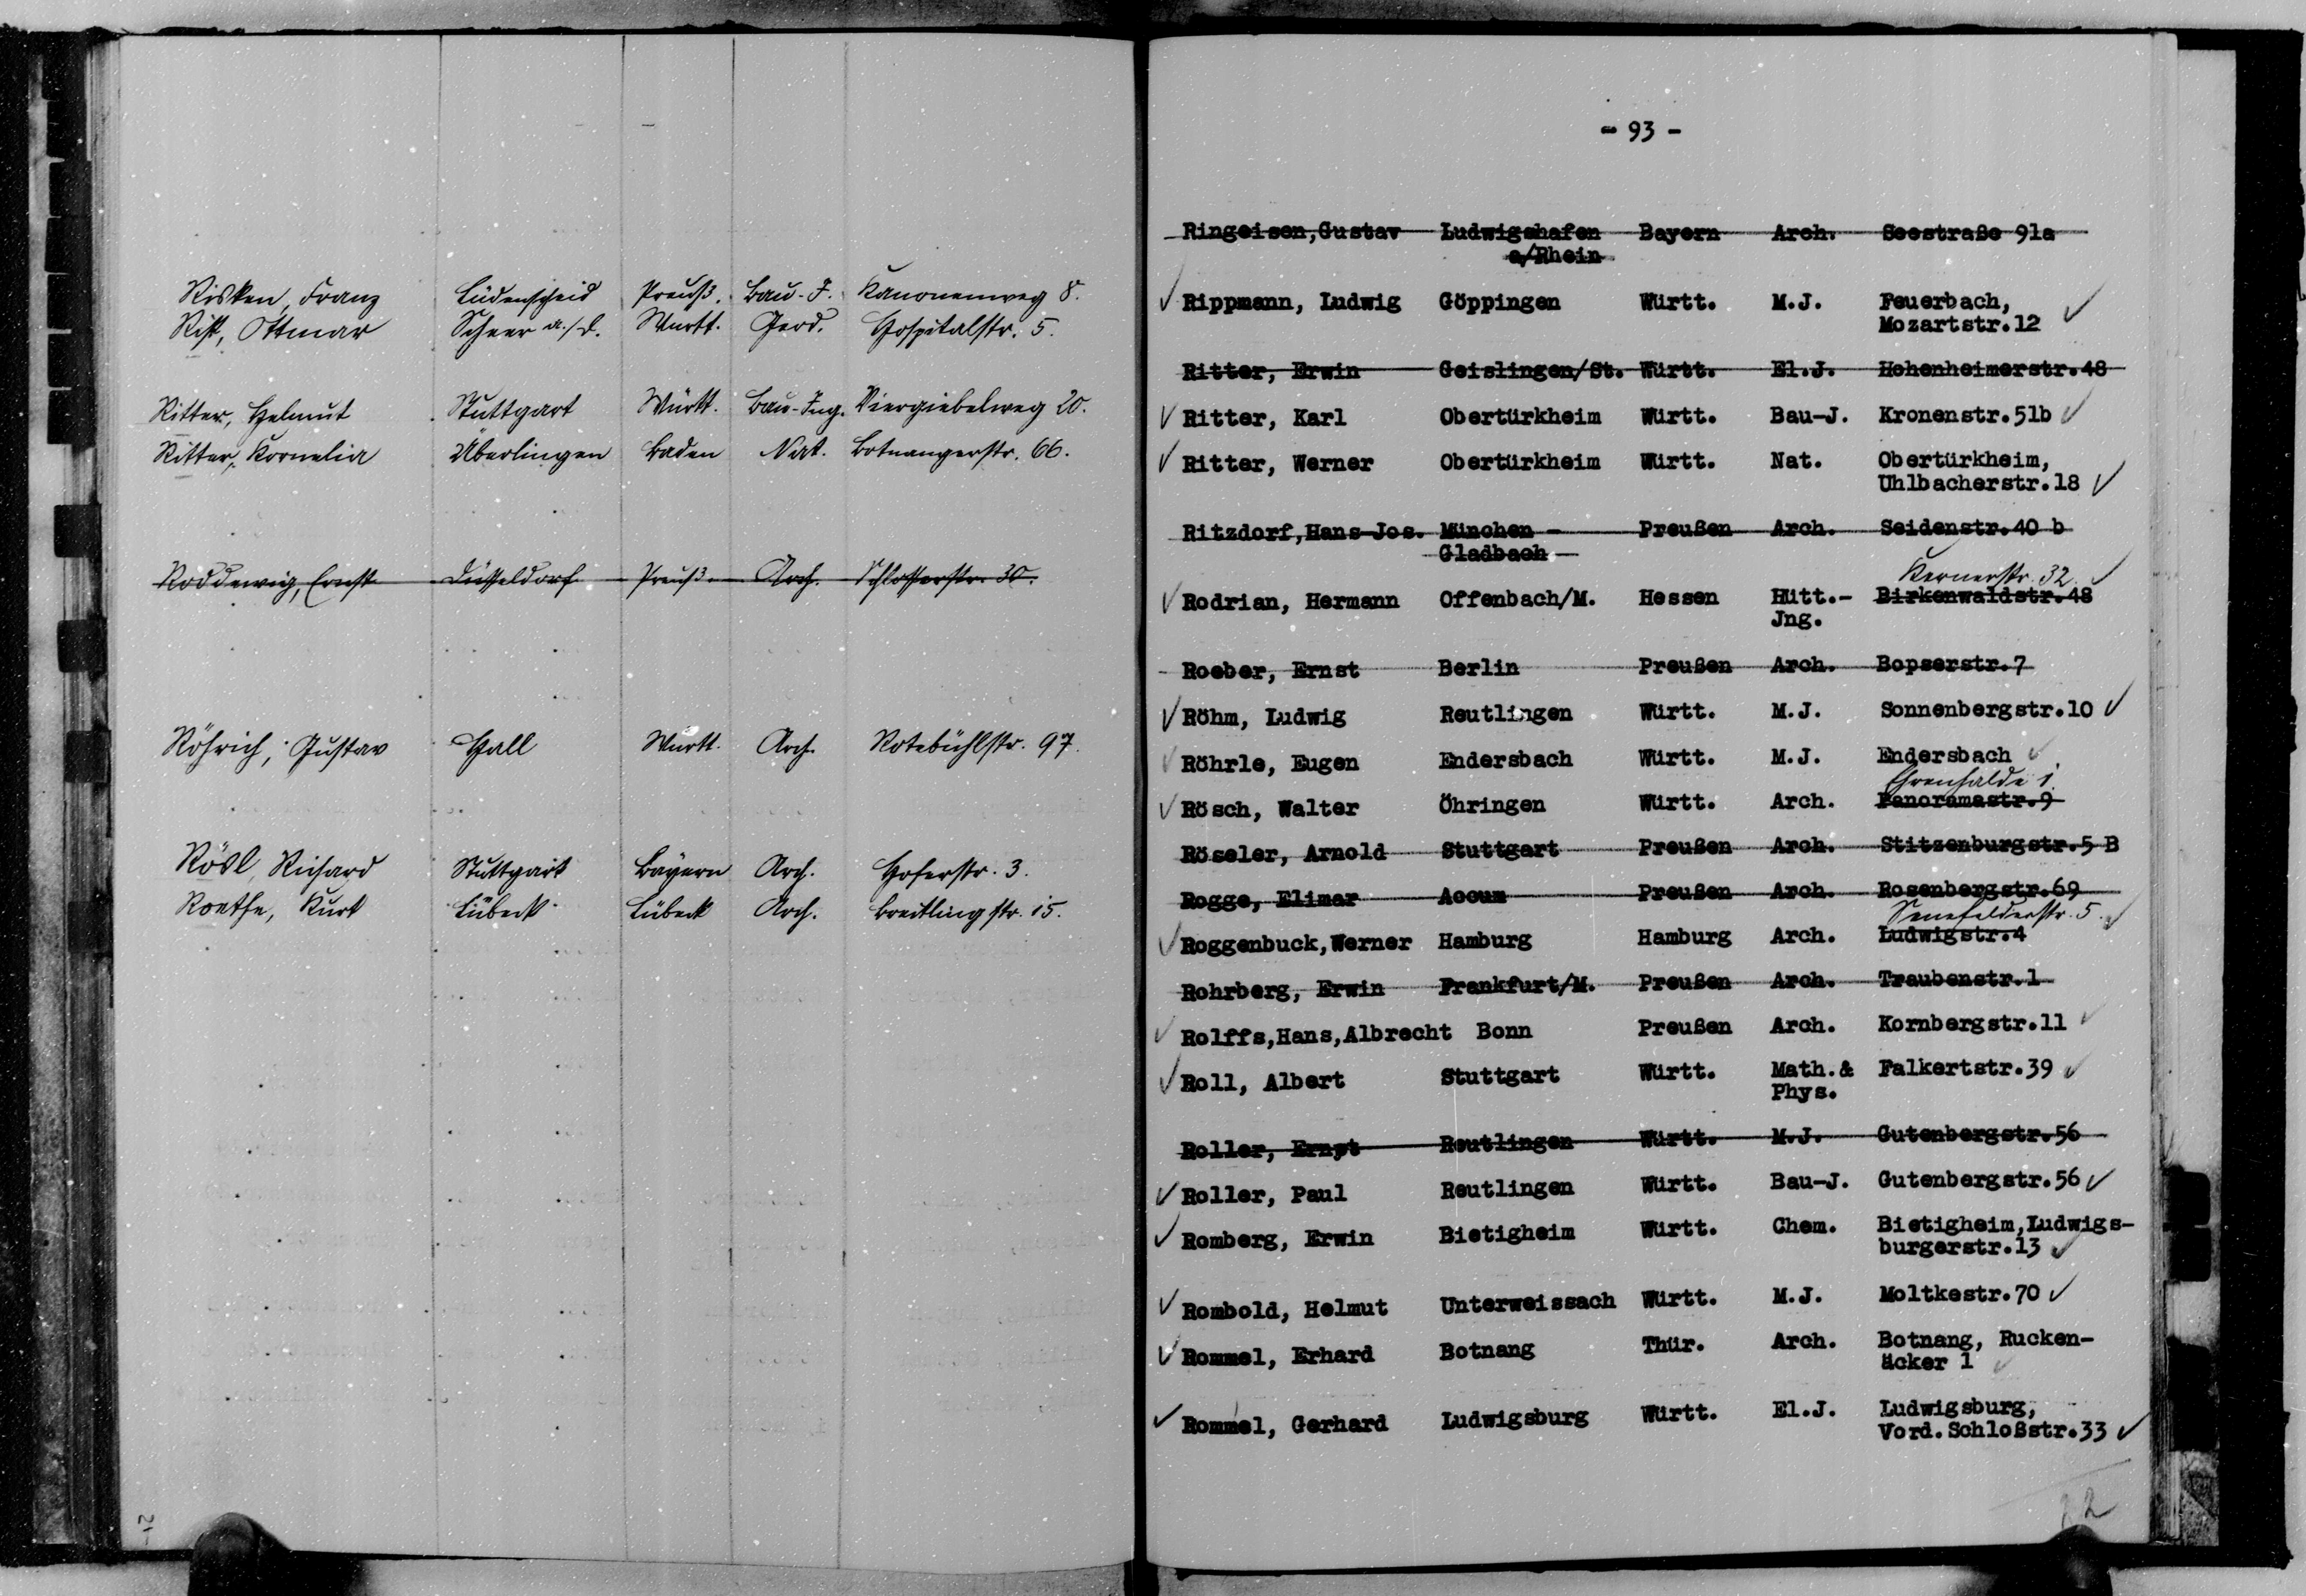 Risken, Franz Lüdenscheid Preuß. Bau-J. Kanonenweg 8.
Rist, Ottmar Scheer a./D. Württ. Geod. Hospitalstr. 5.
Ritter, Helmut Stuttgart Württ. Bau-Ing. Viergiebelweg 20.
Ritter, Kornelia Überlingen Baden Nat. Botnangerstr. 66.
Roddewig, Ernst Düsseldorf Preuß. Arch. Schlosserstr. 30.
Röhrich, Gustav Hall Württ. Arch. Rotebühlstr. 97.
Rösl, Richard Stuttgart Bayern Arch. Hoferstr. 3.
Roethe, Kurt Lübeck Lübeck Arch. Breitlingstr. 15.
- 93 -
Ringeisen,Gustav Ludwigshafen Bayern Arch. Seestraße 91a
a/Rhein
Rippmann, Ludwig Göppingen Württ. M.J. Feuerbach,
Mozartstr.12
Ritter, Erwin Geislingen/St. Württ. El.J. Hohenheimerstr.48
Ritter, Karl Obertürkheim Württ. Bau-J. Kronenstr.51b
Ritter, Werner Obertürkheim Württ. Nat. Obertürkheim,
Uhlbacherstr.18
Ritzdorf,Hans-Jos. München - Preußen Arch. Seidenstr.40 b
Gladbach
Kernerstr. 32.
Rodrian, Hermann Offenbach/M. Hessen Hütt.- Birkenwaldstr.48
Jng.
Roeber, Ernst Berlin Preußen Arch. Bopserstr.7
Röhm, Ludwig Reutlingen Württ. M.J. Sonnenbergstr.10
Röhrle, Eugen Endersbach Württ. M.J. Endersbach
Ehrenhalde 1.
Rösch, Walter Öhringen Württ. Arch. Panoramastr.9
Röseler, Arnold Stuttgart Preußen Arch. Stitzenburgstr.5 B
Rogge, Elimar Accum Preußen Arch. Rosenbergstr.69
Senefelderstr. 5.
Roggenbuck,Werner Hamburg Hamburg Arch. Ludwigstr.4
Rohrberg, Erwin Frankfurt/M. Preußen Arch. Traubenstr.1
Rolffs,Hans,Albrecht Bonn Preußen Arch. Kornbergstr.11
Roll, Albert Stuttgart Württ. Math.& Falkertstr.39
Phys.
Roller, Ernst Reutlingen Württ. M.J. Gutenbergstr.56
Roller, Paul Reutlingen Württ. Bau-J. Gutenbergstr.56
Romberg, Erwin Bietigheim Württ. Chem. Bietigheim,Ludwigs-
burgerstr.13
Rombold, Helmut Unterweissach Württ. M.J. Moltkestr.70
Rommel, Erhard Botnang Thür. Arch. Botnang, Rucken-
äcker 1
Rommel, Gerhard Ludwigsburg Württ. El.J. Ludwigsburg,
Vord.Schloßstr.33